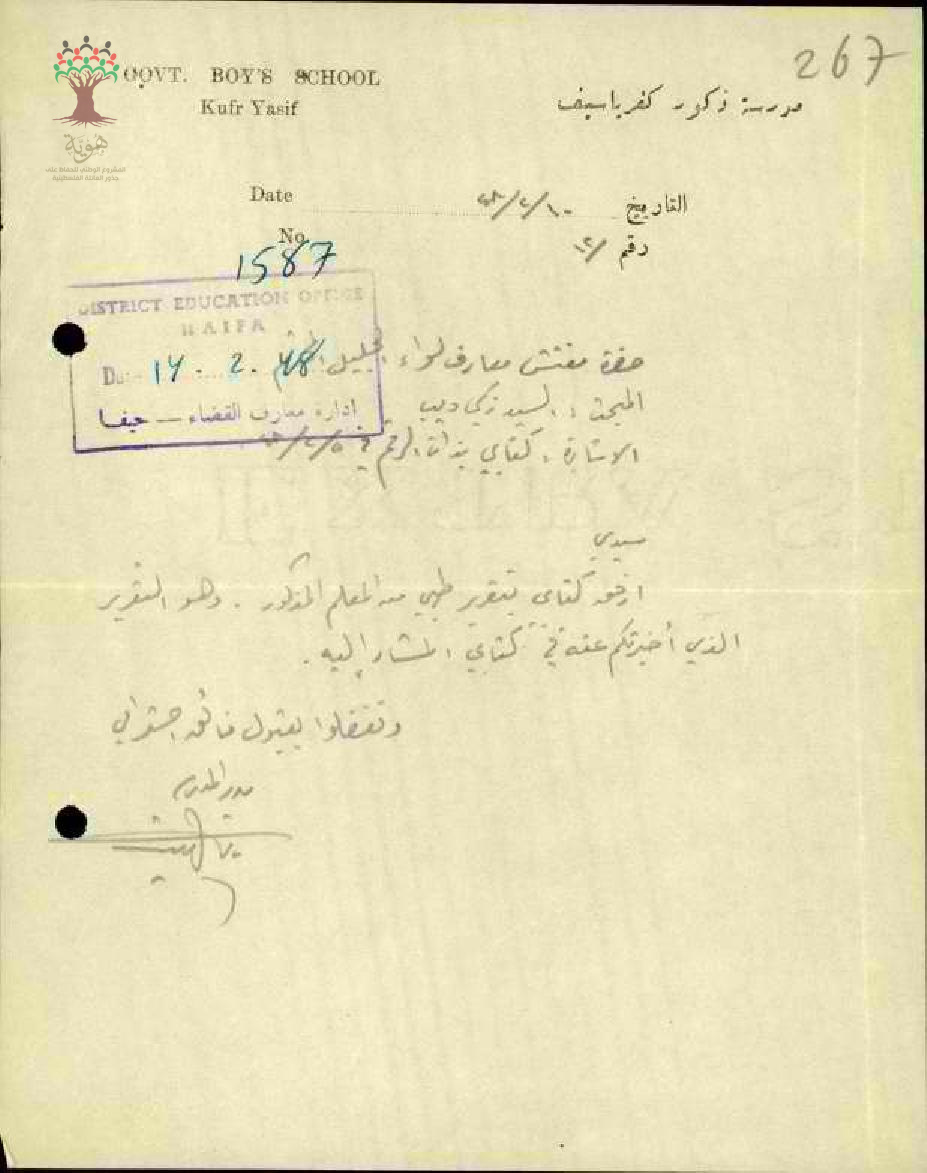 267
GOVT. BOY'S SCHOOL
Kufr Yasif
مدرسة ذكور كفرياسيف
هوية
المشروع الوطني للحفاظ على
جذور العائلة الفلسطينية
Date التاريخ ٤٨/٢/١٠
No. رقم ١٢/
1587
DISTRICT EDUCATION OFFICE
HAIFA
Date 14 . 2 . 48
ادارة معارف القضاء — حيفا
حضرة مفتش معارف لواء الجليل
المبحث : السيد زكي ديب
الاشارة : كتابي بذات الرقم في ٤٨/٢/٥
سيدي
ارفق كتابي بتقرير طبي من المعلم المذكور . وهو التقرير
الذي أخبرتكم عنه في كتابي المشار إليه .
وتفضلوا بقبول فائق احترامي
مدير المدرسة